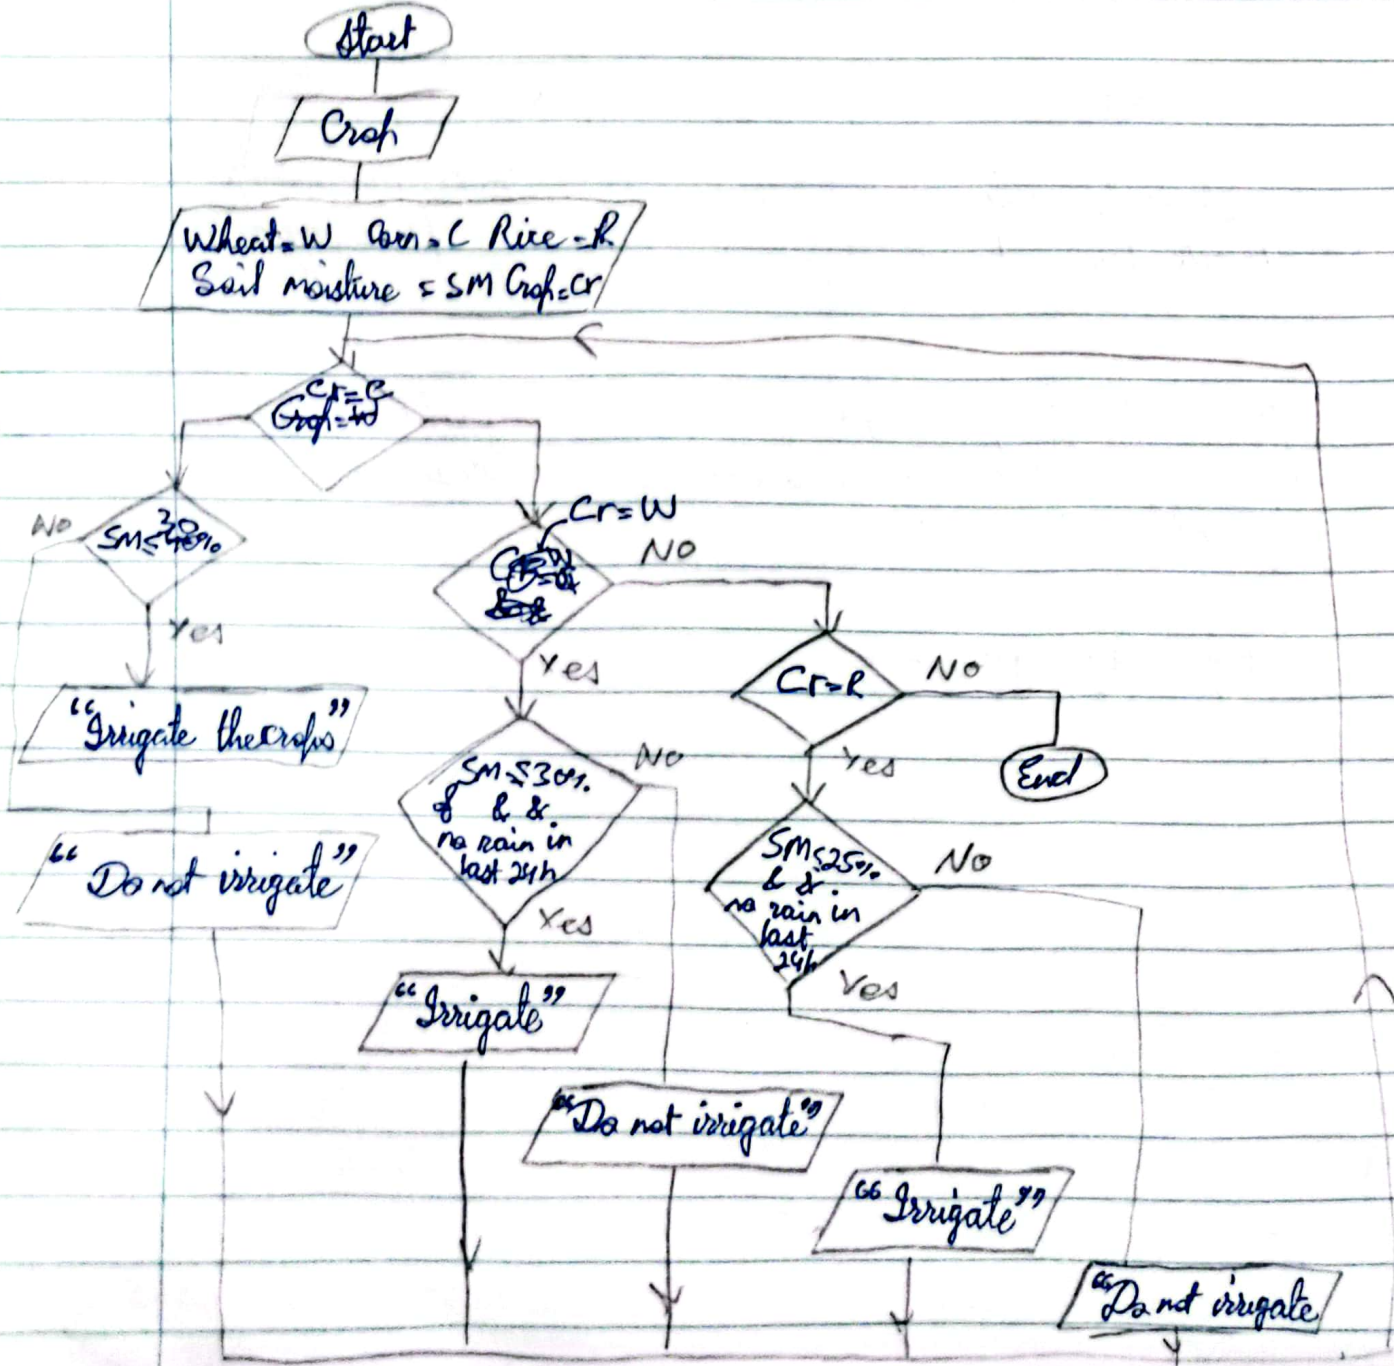 Start
Crop
Wheat=W Corn=C Rice=R
Soil moisture = SM Crop=Cr
Cr=C
No
SM≤
30
%
Yes
"Irrigate the crops"
"Do not irrigate"
Cr=W
No
Yes
SM≤30%
&&
no rain in
last 24h
No
Yes
"Irrigate"
"Do not irrigate"
Cr=R
No
End
Yes
SM≤25%
&&
no rain in
last
24h
No
Yes
"Irrigate"
"Do not irrigate